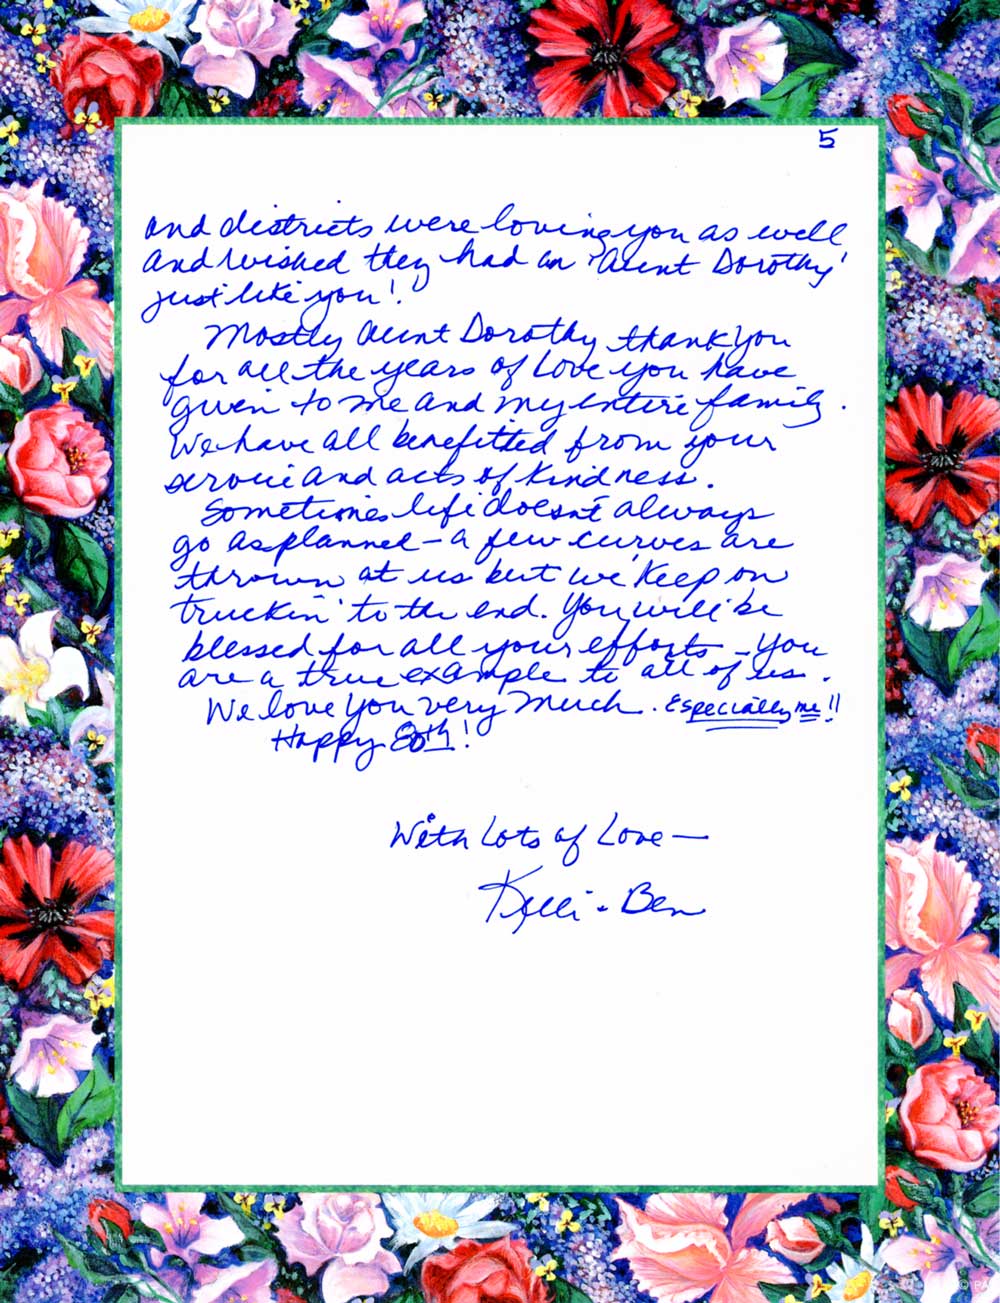 5
and districts were loving you as well
and wished they had an 'Aunt Dorothy'
just like you!
Mostly Aunt Dorothy thank you
for all the years of love you have
given to me and my entire family.
We have all benefitted from your
service and acts of kindness.
Sometimes life doesn't always
go as planned – a few curves are
thrown at us but we 'keep on
truckin' to the end. You will be
blessed for all your efforts – You
are a true example to all of us.
We love you very much. Especially me!!
Happy 80th!
With Lots of Love –
Kelli & Ben
© PA